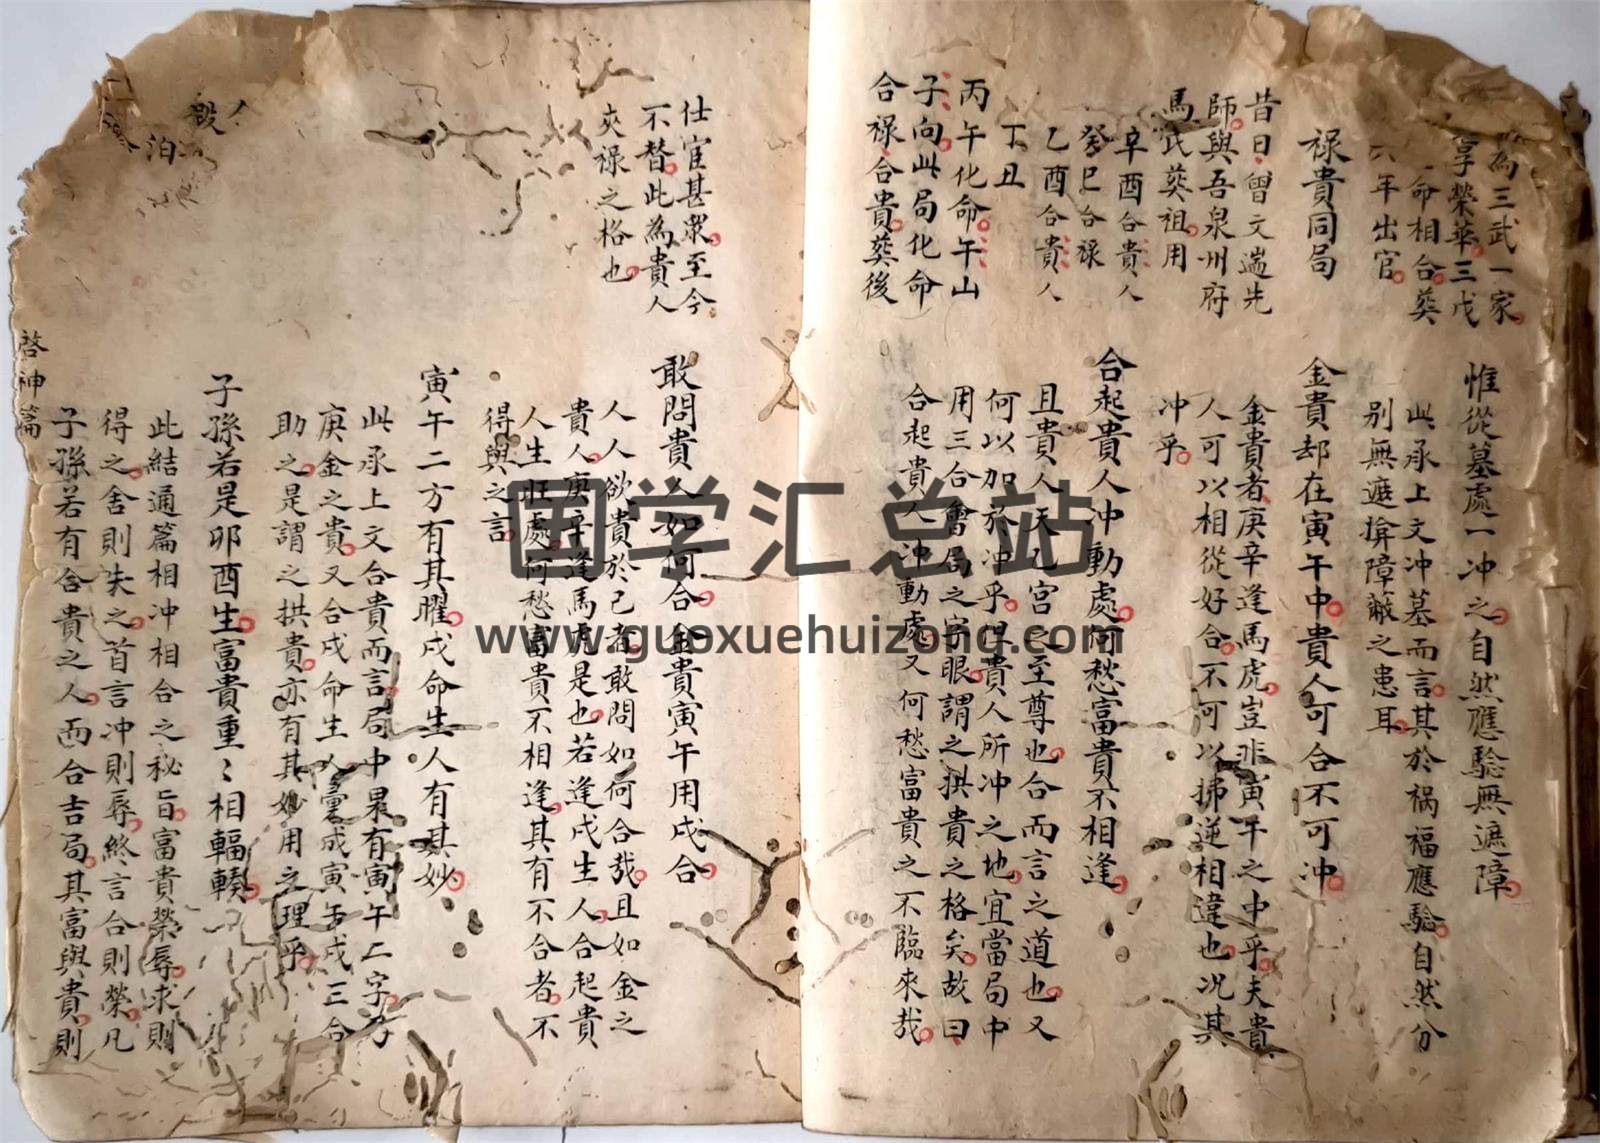 為三武一家
享榮華三戊
命相合葬
年出官
祿貴同局
昔日曾文遄先
師與吾泉州府
馬氏葬祖用
辛酉合貴人
癸巳合祿
乙酉合貴人
丁丑
丙午化命午山
子向此局化命
合祿合貴葬後
惟從墓處一冲之自然應驗無遮障
此承上文冲墓而言其於禍福應驗自然分
别無遮揜障蔽之患耳
金貴却在寅午中貴人可合不可冲
金貴者庚辛逢馬虎豈非寅午之中乎夫貴
人可以相從好合不可以拂逆相違也况其
冲乎
合起貴人冲動處何愁富貴不相逢
且貴人天乙宮之至尊也合而言之道也又
何以加於冲乎早貴人所冲之地宜當局中
用三合會局之字眼謂之拱貴之格矣故曰
合起貴人冲動處又何愁富貴之不臨來哉
仕宦甚眾至今
不替此為貴人
夾祿之格也
毀
泊
敢問貴人如何合金貴寅午用戌合
人人欲貴於己者敢問如何合哉且如金之
貴人庚辛逢馬虎是也若逢戌生人合起貴
人生旺處何愁富貴不相逢其有不合者不
得與之言
寅午二方有其曜戌命生人有其妙
此承上文合貴而言局中果有寅午二字乃
庚金之貴又合戌命生人彙成寅午戌三合
助之是謂之拱貴亦有其妙用之理乎
子孫若是卯酉生富貴重〻相輻輳
此結通篇相冲相合之秘旨富貴榮辱求則
得之舍則失之首言冲則辱終言合則榮凡
子孫若有合貴之人而合吉局其富與貴則
啓神篇
国学汇总站
www.guoxuehuizong.com